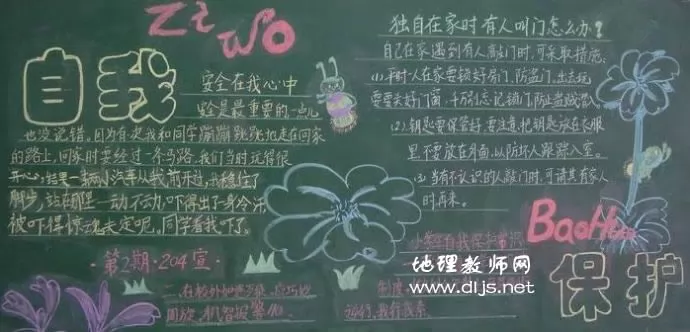 Zi Wo
自我
安全在我心中
安全是最重要的一点儿
也没说错。因为有次我和同学蹦蹦跳跳地走在回家
的路上,回家时要经过一条马路,我们当时玩得很
开心,结果一辆小汽车从我前开过,我稳住了
脚步,站在那里一动不动,吓得出了一身冷汗,
被吓得惊魂未定呢,同学看我吓了。
·第2期·204宣
一、在校外如遇歹徒,应巧妙
周旋,机智报警
独自在家时有人叫门怎么办?
自己在家遇到有人敲门时,可采取措施。
(1)平时一人在家要锁好房门、防盗门,出去玩
要关好门窗,千万别忘记锁门,防止盗贼潜入
(2)钥匙要保管好,要注意把钥匙放在衣服
里不要放在外面,以防坏人跟踪入室。
(3)当有不认识的人敲门时,可请其有家人
时再来。
BaoHu
小学生自我保护常识
制度
我行我素
保护
地理教师网
www.dljs.net